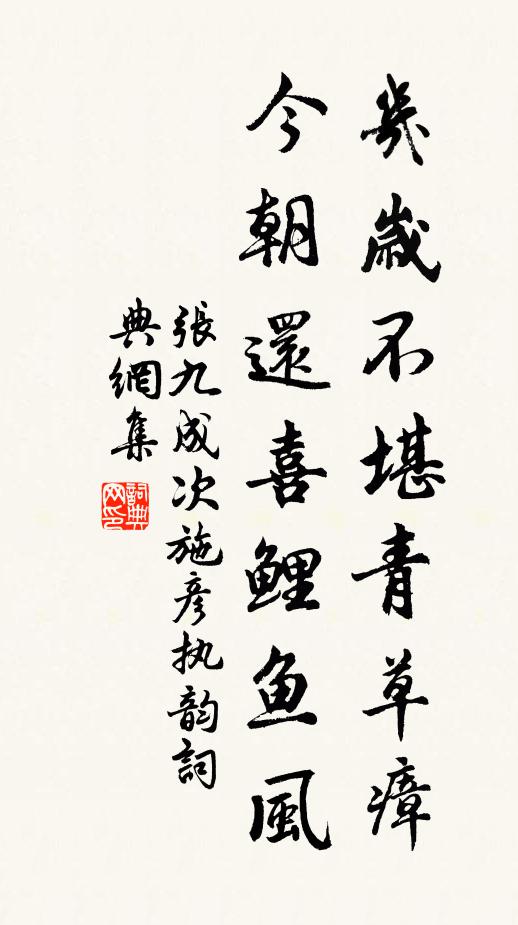 幾歲不堪青草瘴
今朝還喜鯉鱼風
張九成次施彦执韵詞
典網集
詞典
网印